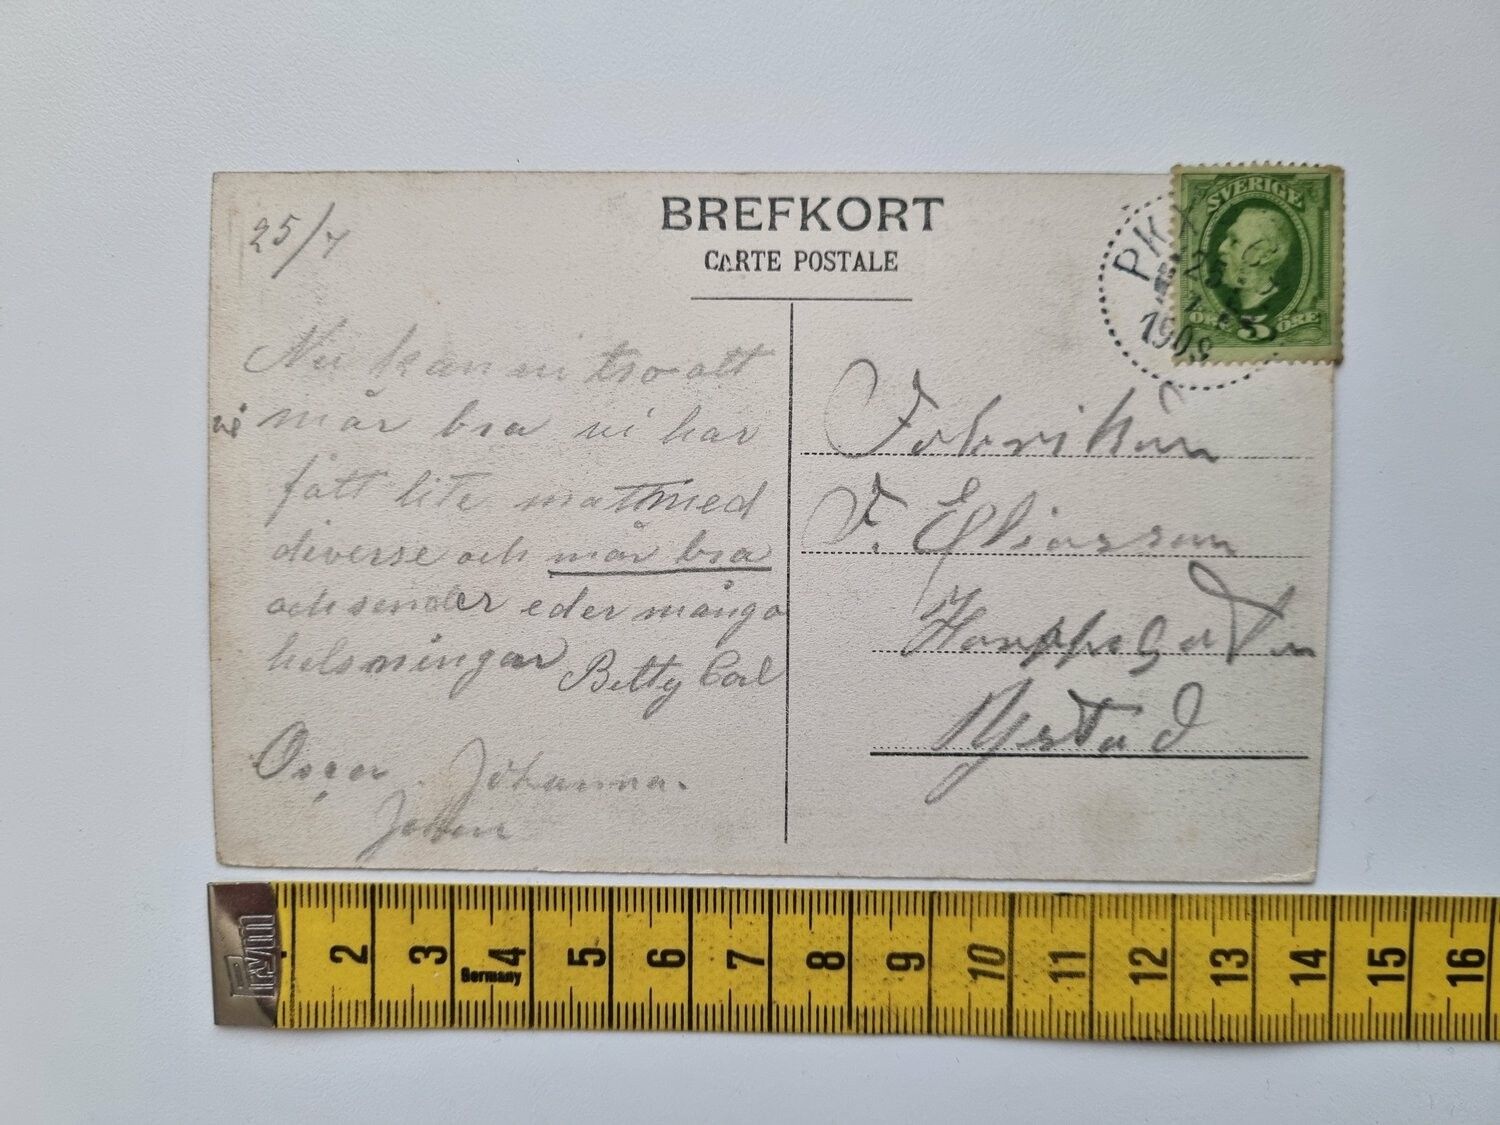 BREFKORT
CARTE POSTALE
25/7
Nu kan ni tro att
vi mår bra vi har
fått lite mattmed
diverse och mår bra
och sender eder många
helsningar Betty Carl
Oscar. Johanna.
Johan
PKX
25
7
1908
SVERIGE
ÖRE 5 ÖRE
Fabrikör
F. Eliasson
Ystad
Prym
2 3 4 5 6 7 8 9 10 11 12 13 14 15 16
Germany